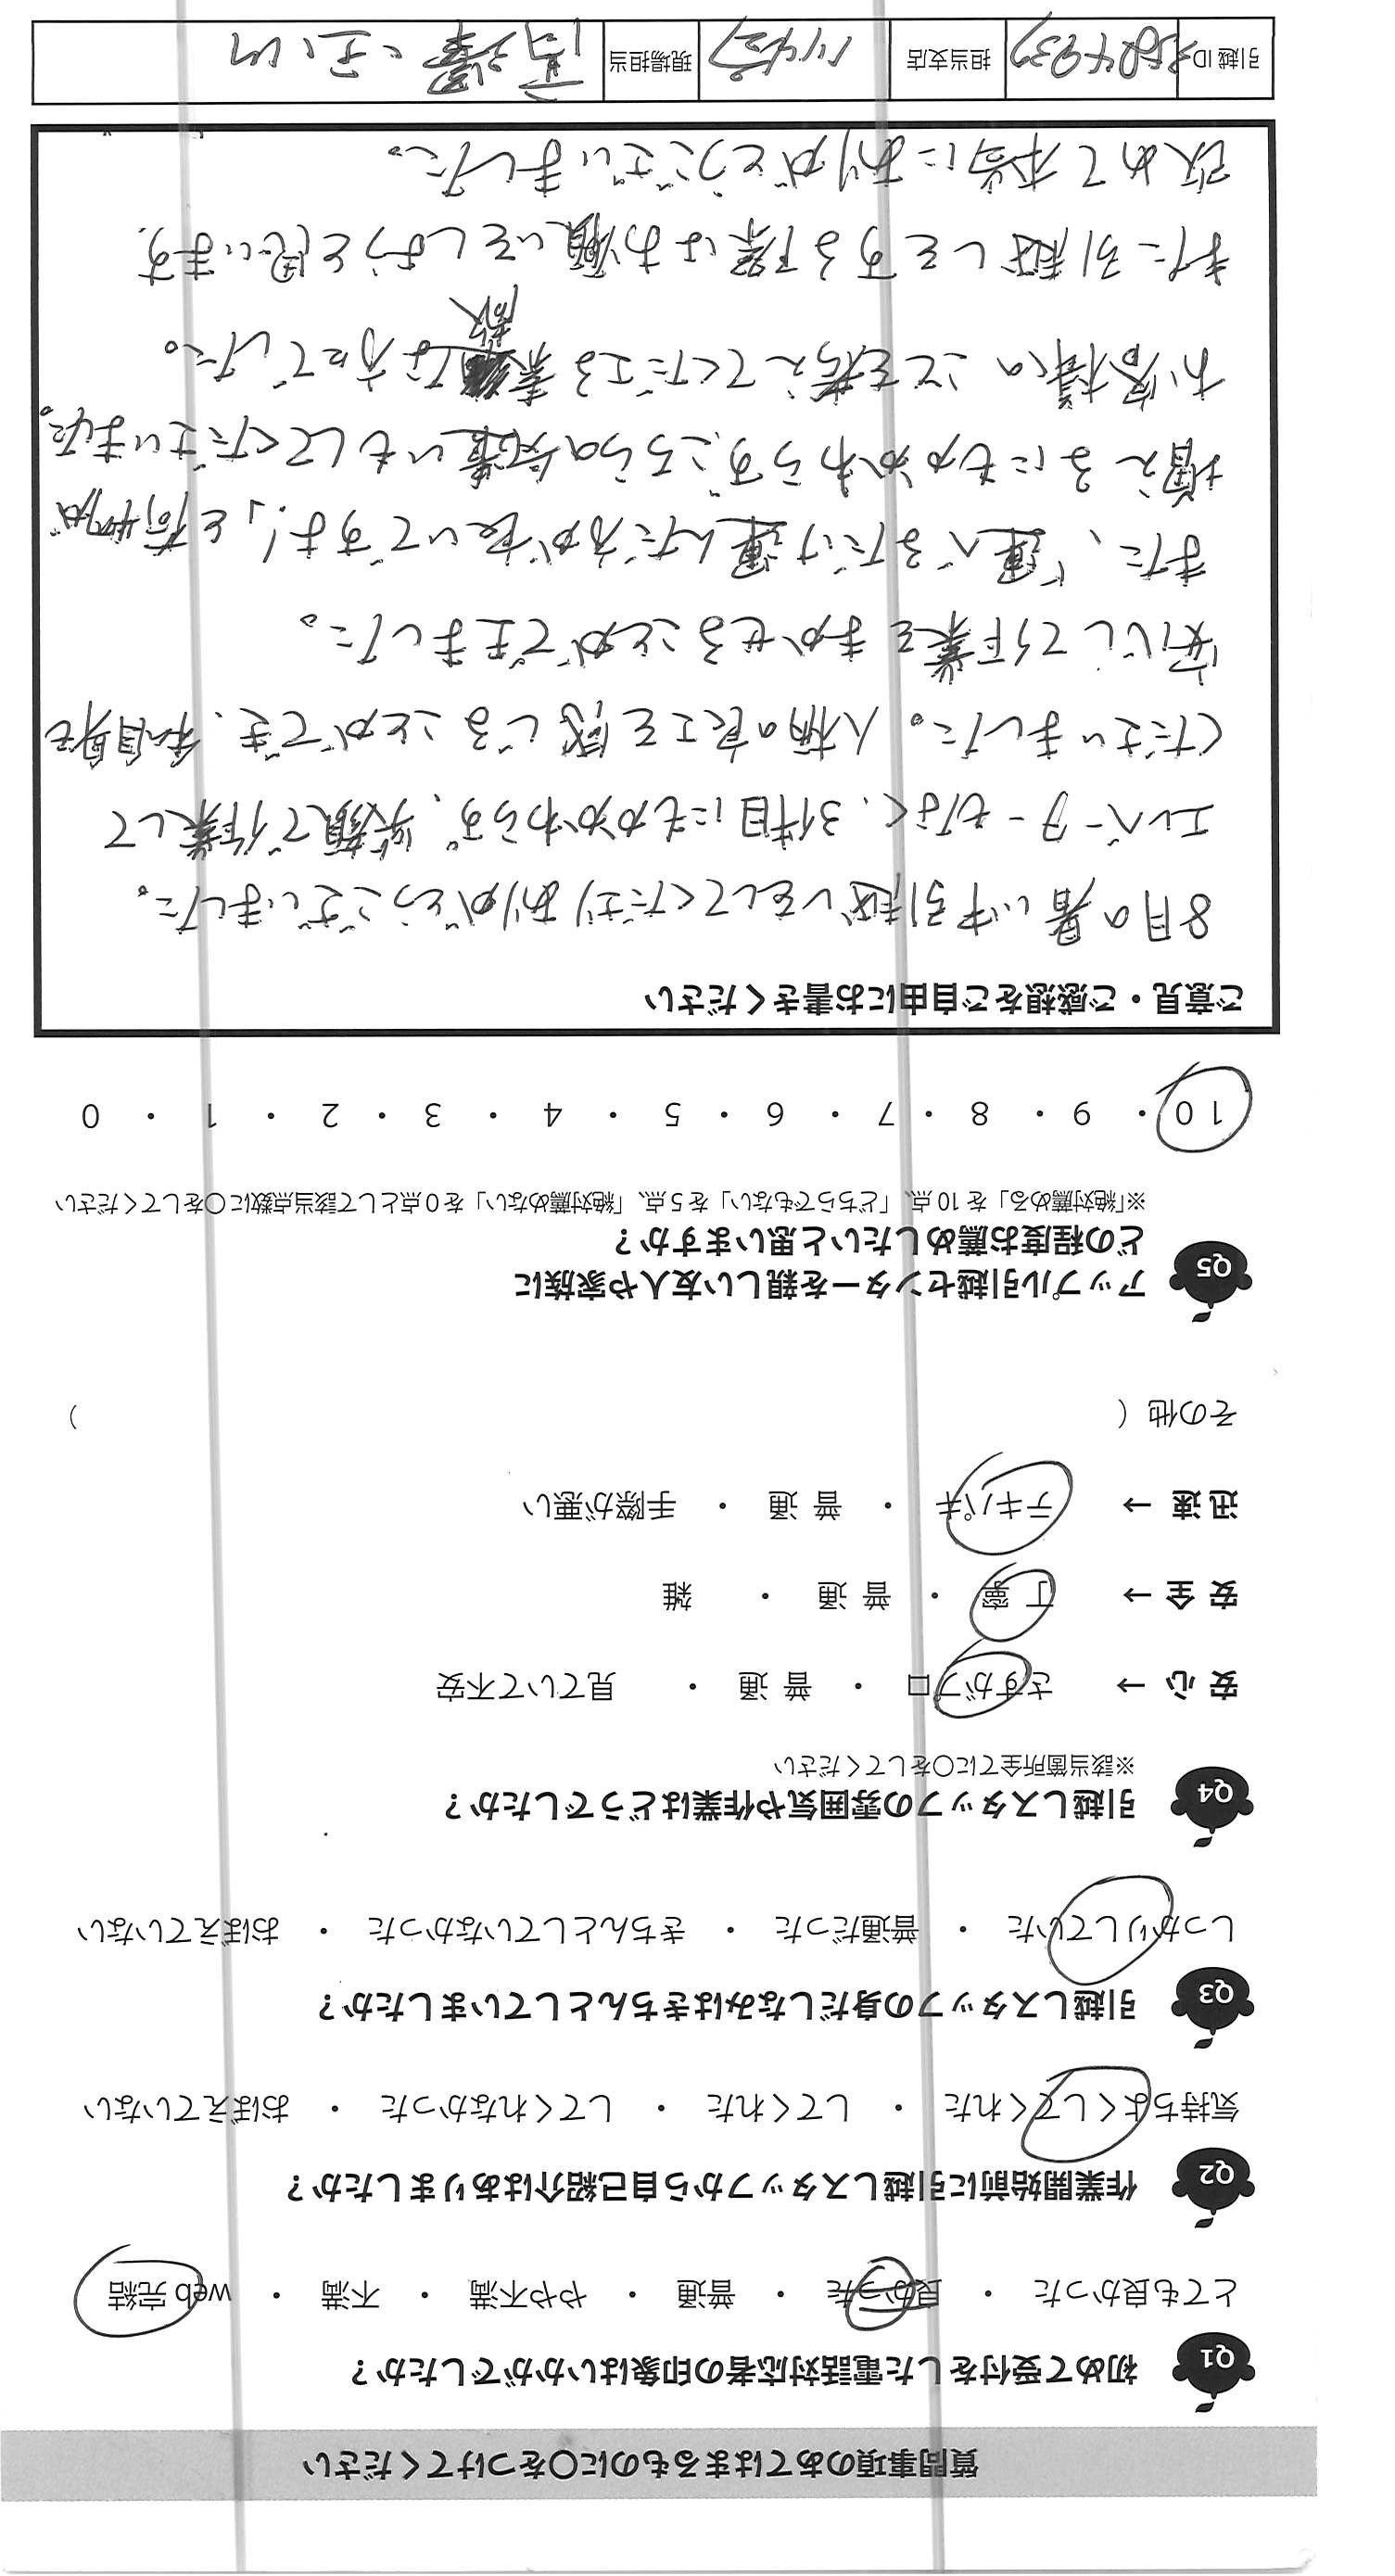 質問事項のあてはまるものに○をつけてください
Q1 初めて受付をした電話対応者の印象はいかがでしたか？
とても良かった ・ 良かった ・ 普通 ・ やや不満 ・ 不満 ・ web 完結
Q2 作業開始前に引越しスタッフから自己紹介はありましたか？
気持ちよくしてくれた ・ してくれた ・ してくれなかった ・ おぼえていない
Q3 引越しスタッフの身だしなみはきちんとしていましたか？
しっかりしていた ・ 普通だった ・ きちんとしていなかった ・ おぼえていない
Q4 引越しスタッフの雰囲気や作業はどうでしたか？
※該当箇所全てに○をしてください
安 心 → さすがプロ ・ 普 通 ・ 見ていて不安
安 全 → 丁 寧 ・ 普 通 ・ 雑
迅 速 → テキパキ ・ 普 通 ・ 手際が悪い
その他（ ）
Q5 アップル引越センターを親しい友人や家族に
どの程度お薦めしたいと思いますか？
※「絶対薦める」を 10 点、「どちらでもない」を 5 点、「絶対薦めない」を 0 点として該当点数に○をしてください
10 ・ 9 ・ 8 ・ 7 ・ 6 ・ 5 ・ 4 ・ 3 ・ 2 ・ 1 ・ 0
ご意見・ご感想をご自由にお書きください
8月の暑い中引越しをしてくださりありがとうございました。
エレベーターもなく、3件目にもかかわらず、笑顔で作業して
くださいました。人柄の良さを感じることができ、私自身も
安心して作業をまかせることができました。
また、「運べるだけ運んだ方が良いですよ！」と荷物が
増えるにもかかわらず、こちらの気遣いもしてくださいました。
お客様のことを考えてくださる素敵な方々でした。
また引越しをする際はお願いをしようと思います。
改めて本当にありがとうございました。
引越 ID 担当支店 現場担当